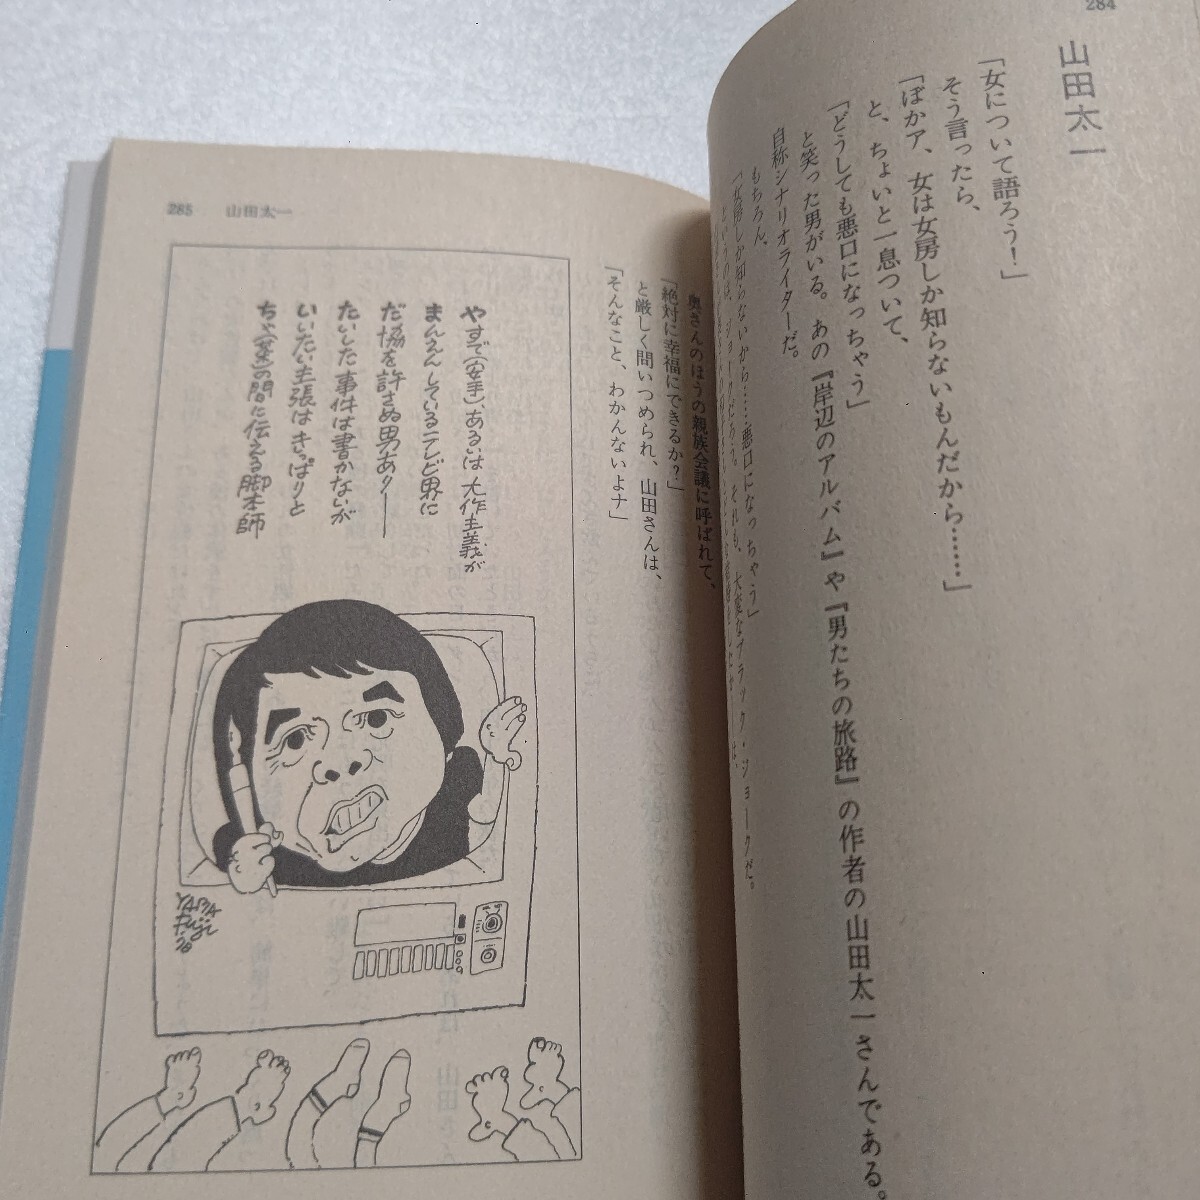 284
山田太一
「女について語ろう！」
そう言ったら、
「ぼかア、女は女房しか知らないもんだから……」
と、ちょいと一息ついて、
「どうしても悪口になっちゃう」
と笑った男がいる。あの『岸辺のアルバム』や『男たちの旅路』の作者の山田太一さんである。
自称シナリオライターだ。
もちろん、
「女房しか知らないから……悪口になっちゃう」
というのは、ジョークだろう？。それも、大変なブラック・ジョークだ。
285 山田太一
奥さんのほうの親族会議に呼ばれて、
「絶対に幸福にできるか？」
と厳しく問いつめられ、山田さんは、
「そんなこと、わかんないよナ」
やすで(安手)、あるいは大作主義が
まんえんしているテレビ界に
だ協を許さぬ男あり──
たいした事件は書かないが
いいたい主張はきっぱりと
ちゃ(茶)の間に伝える脚本師
YABA
Fuji